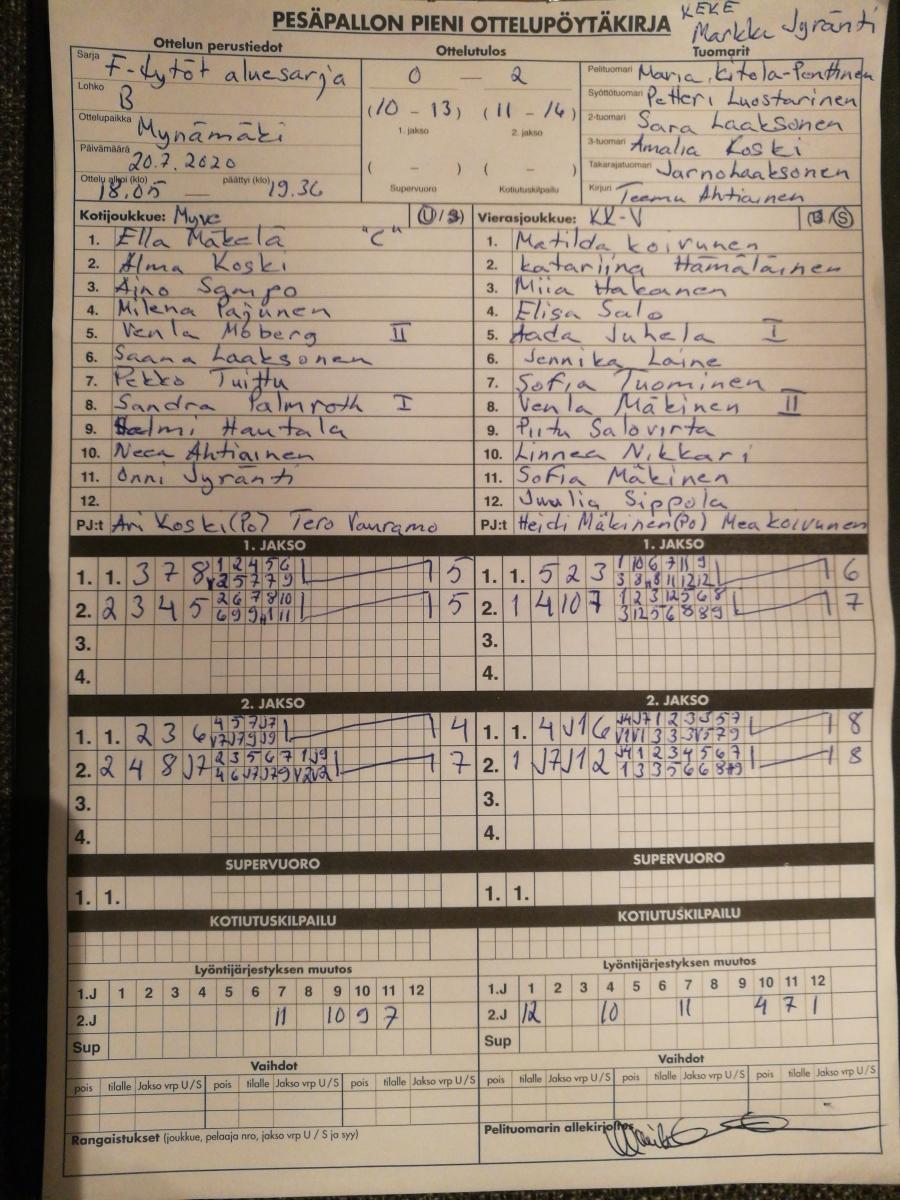 PESÄPALLON PIENI OTTELUPÖYTÄKIRJA
KEKE
Markku Jyränti
Ottelun perustiedot
Ottelutulos
Tuomarit
Sarja F-tytöt aluesarja
Lohko B
Ottelupaikka Mynämäki
Päivämäärä 20.7.2020
Ottelu alkoi (klo) 18.05 — päättyi (klo) 19.36
0 — 2
(10 - 13) (11 - 16)
1. jakso 2. jakso
( - ) ( - )
Supervuoro Kotiutuskilpailu
Pelituomari Maria Kitola-Penttinen
Syöttötuomari Petteri Luostarinen
2-tuomari Sara Laaksonen
3-tuomari Amalia Koski
Takarajatuomari Jarno Laaksonen
Kirjuri Teemu Ahtiainen
Kotijoukkue: Myve U/S
1. Ella Mäkelä "C"
2. Alma Koski
3. Aino Sampo
4. Milena Pajunen
5. Venla Moberg II
6. Saana Laaksonen
7. Pekko Tuittu
8. Sandra Palmroth I
9. Helmi Hautala
10. Neea Ahtiainen
11. Onni Jyränti
12.
PJ:t Ari Koski (Po) Tero Vauramo
Vierasjoukkue: KK-V U/S
1. Matilda Koivunen
2. Katariina Hämäläinen
3. Miia Hakanen
4. Elisa Salo
5. Aada Juhela I
6. Jennika Laine
7. Sofia Tuominen
8. Venla Mäkinen II
9. Piitu Salovirta
10. Linnea Nikkari
11. Sofia Mäkinen
12. Juulia Sippola
PJ:t Heidi Mäkinen (Po) Mea Koivunen
1. JAKSO
1. 1. 3 7 8 5
2. 2 3 4 5 5
3.
4.
1. JAKSO
1. 1. 5 2 3 6
2. 1 4 10 7 7
3.
4.
2. JAKSO
1. 1. 2 3 6 4
2. 2 4 8 J7 7
3.
4.
2. JAKSO
1. 1. 4 J1 6 8
2. 1 J7 J1 2 8
3.
4.
SUPERVUORO
1. 1.
SUPERVUORO
1. 1.
KOTIUTUSKILPAILU
KOTIUTUSKILPAILU
Lyöntijärjestyksen muutos
1.J 1 2 3 4 5 6 7 8 9 10 11 12
2.J 11 10 9 7
Sup
Lyöntijärjestyksen muutos
1.J 1 2 3 4 5 6 7 8 9 10 11 12
2.J 12 10 11 4 7 1
Sup
Vaihdot
pois tilalle Jakso vrp U/S pois tilalle Jakso vrp U/S pois tilalle Jakso vrp U/S
Vaihdot
pois tilalle Jakso vrp U/S pois tilalle Jakso vrp U/S pois tilalle Jakso vrp U/S
Rangaistukset (joukkue, pelaaja nro, jakso vrp U / S ja syy)
Pelituomarin allekirjoitus